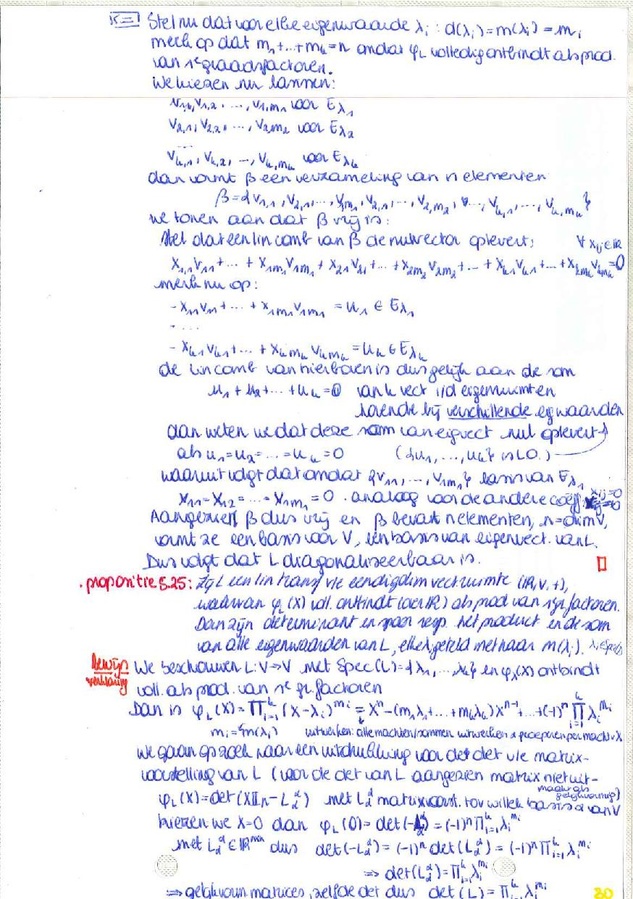 ⇐ Stel nu dat voor elke eigenwaarde λᵢ : d(λᵢ) = m(λᵢ) = mᵢ
merk op dat m₁+...+mₖ = n omdat φ_L volledig ontbindt als prod.
van 1e graadsfactoren.
We kiezen nu bassen:
v₁,₁, v₁,₂, ..., v₁,m₁ voor E_λ₁
v₂,₁, v₂,₂, ..., v₂,m₂ voor E_λ₂
...
vₖ,₁, vₖ,₂, ..., vₖ,mₖ voor E_λₖ
dan vormt β een verzameling van n elementen
β = {v₁,₁, v₁,₂, ..., v₁m₁, v₂,₁, ..., v₂,m₂, ..., vₖ,₁, ..., vₖ,mₖ}
we tonen aan dat β vrij is:
Stel dat een lin comb van β de nulvector oplevert: ∀ xᵢⱼ ∈ ℝ
x₁₁v₁₁ + ... + x₁m₁v₁m₁ + x₂₁v₂₁ + ... + x₂m₂v₂m₂ + ... + xₖ₁vₖ₁ + ... + xₖmₖvₖmₖ = 0
merk nu op:
- x₁₁v₁₁ + ... + x₁m₁v₁m₁ = u₁ ∈ E_λ₁
- ...
- xₖ₁vₖ₁ + ... + xₖmₖvₖmₖ = uₖ ∈ E_λₖ
de lin comb van hierboven is dus gelijk aan de som
u₁ + u₂ + ... + uₖ = 0 van k vect i/d eigenruimten
horende bij verschillende eigwaarden
dan weten we dat deze som van eigvect nul oplevert
als u₁ = u₂ = ... = uₖ = 0 ({u₁, ..., uₖ} is LO.)
waaruit volgt dat omdat {v₁₁, ..., v₁m₁} basis van E_λ₁
x₁₁ = x₁₂ = ... = x₁m₁ = 0. analoog voor de andere coëff. xᵢⱼ=0
Aangezien β dus vrij en β bevat n elementen, n = dim V,
vormt ze een basis voor V, een basis van eigenvect. van L.
Dus volgt dat L diagonaliseerbaar is. □
• propositie 5.25: Zij L een lin transf v/e eindigdim vectruimte (ℝ, V, +),
waarvan φ_L(X) voll. ontbindt (over ℝ) als prod van 1e gr factoren.
Dan zijn determinant en spoor resp. het product en de som
van alle eigenwaarden van L, elk geteld met haar m(λᵢ).
bewijs We beschouwen L: V→V met Spec(L) = {λ₁, ..., λₖ} en φ_L(X) ontbindt
voll. als prod. van 1e gr factoren
Dan is φ_L(X) = ∏ᵢ₌₁ᵏ (X-λᵢ)^mᵢ = Xⁿ - (m₁λ₁ + ... + mₖλₖ) Xⁿ⁻¹ + ... + (-1)ⁿ ∏ᵢ₌₁ᵏ λᵢ^mᵢ
mᵢ = m(λᵢ) uitwerken: alle machten/sommen uitwerken & groeperen per macht v X
We gaan op zoek naar een uitdrukking voor det det v/e matrix-
voorstelling van L (voor de det van L aangezien matrix niet uit-
φ_L(X) = det(X𝕀ₙ - L_α^α) met L_α^α matrixvoorst. tov willek basis α van V
kiezen we X=0 dan φ_L(0) = det(-L_α^α) = (-1)ⁿ ∏ᵢ₌₁ᵏ λᵢ^mᵢ
met L_α^α ∈ ℝⁿˣⁿ dus det(-L_α^α) = (-1)ⁿ det(L_α^α) = (-1)ⁿ ∏ᵢ₌₁ᵏ λᵢ^mᵢ
⇒ det(L_α^α) = ∏ᵢ₌₁ᵏ λᵢ^mᵢ
⇒ gelijkvorm matrices, zelfde det dus det(L) = ∏ᵢ₌₁ᵏ λᵢ^mᵢ
30